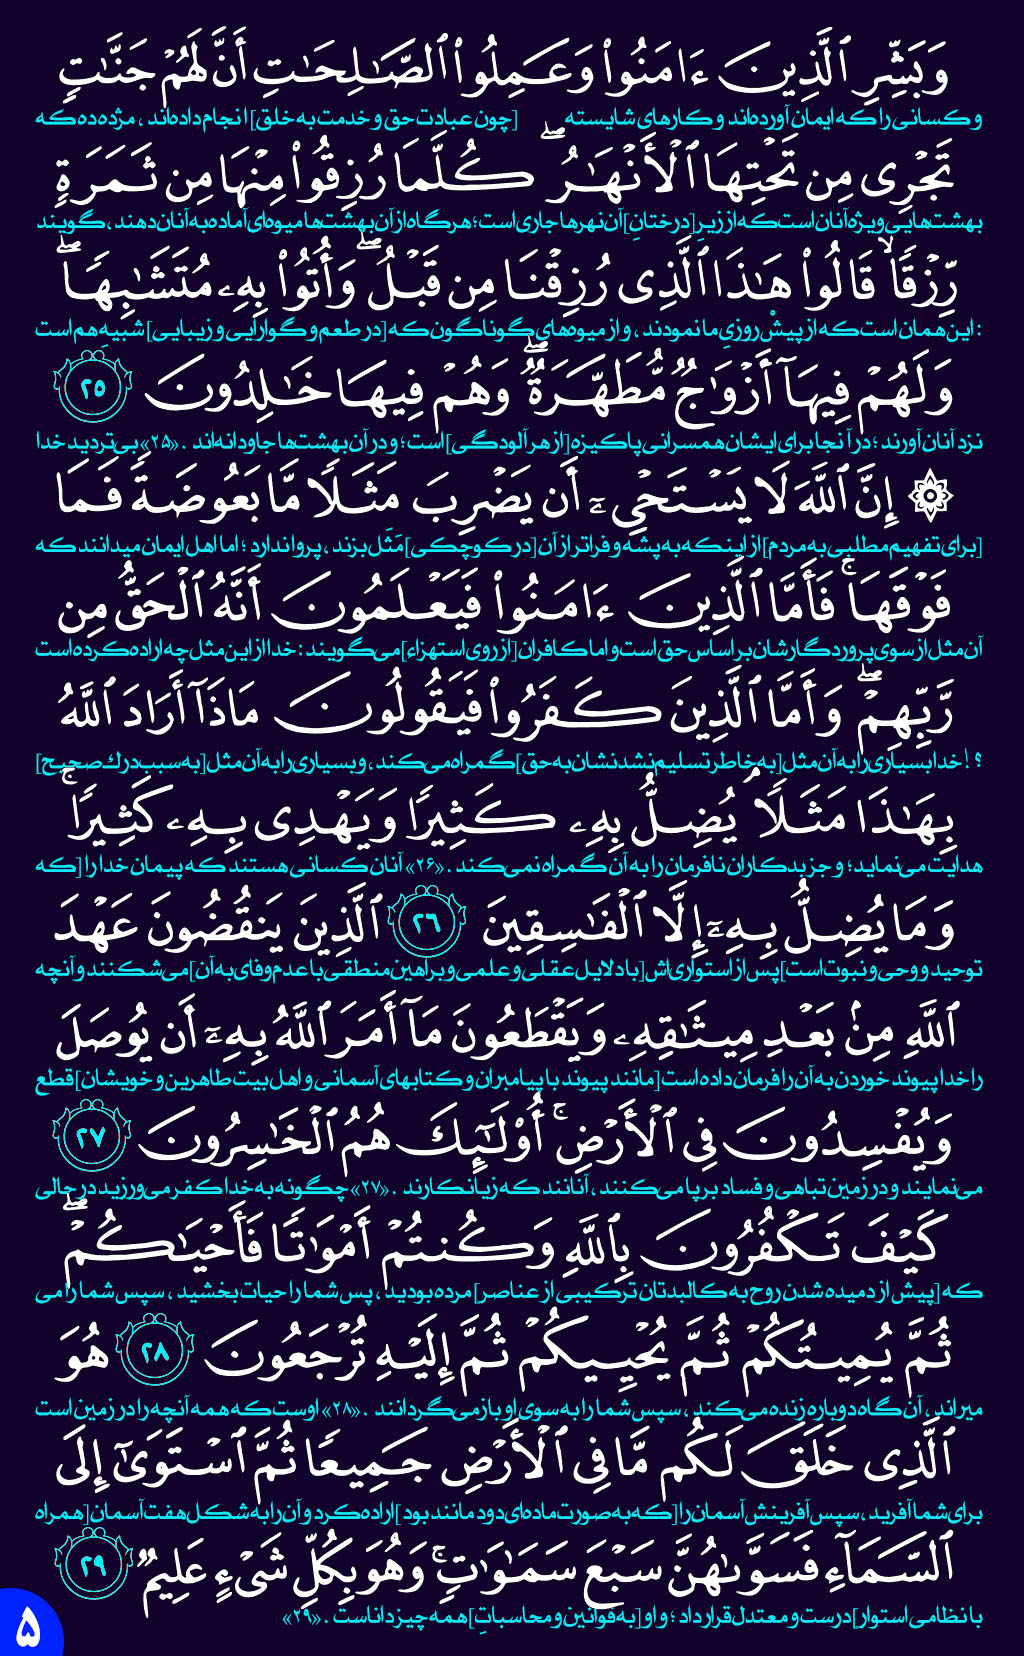 وَبَشِّرِ ٱلَّذِينَ ءَامَنُوا۟ وَعَمِلُوا۟ ٱلصَّـٰلِحَـٰتِ أَنَّ لَهُمْ جَنَّـٰتٍ
و کسانی را که ایمان آورده‌اند و کارهای شایسته [چون عبادت حق و خدمت به خلق] انجام داده‌اند ، مژده ده که
تَجْرِى مِن تَحْتِهَا ٱلْأَنْهَـٰرُ ۖ كُلَّمَا رُزِقُوا۟ مِنْهَا مِن ثَمَرَةٍ
بهشت‌هایی ویژه آنان است که از زیرِ [درختانِ] آن نهرها جاری است ؛ هرگاه از آن بهشت‌ها میوه‌ای آماده به آنان دهند ، گویند
رِّزْقًا ۙ قَالُوا۟ هَـٰذَا ٱلَّذِى رُزِقْنَا مِن قَبْلُ ۖ وَأُتُوا۟ بِهِۦ مُتَشَـٰبِهًا ۖ
: این همان است که از پیشْ روزیِ ما نمودند ، و از میوه‌های گوناگون که [در طعم و گوارایی و زیبایی] شبیهِ هم است
وَلَهُمْ فِيهَآ أَزْوَٰجٌ مُّطَهَّرَةٌ ۖ وَهُمْ فِيهَا خَـٰلِدُونَ ۝٢٥
نزد آنان آورند ؛ در آنجا برای ایشان همسرانی پاکیزه [از هر آلودگی] است ؛ و در آن بهشت‌ها جاودانه‌اند . «۲۵» بی‌تردید خدا
۞ إِنَّ ٱللَّهَ لَا يَسْتَحْىِۦٓ أَن يَضْرِبَ مَثَلًا مَّا بَعُوضَةً فَمَا
[برای تفهیم مطلبی به مردم] از اینکه به پشه و فراتر از آن [در کوچکی] مَثَل بزند ، پروا ندارد ؛ اما اهل ایمان میدانند که
فَوْقَهَا ۚ فَأَمَّا ٱلَّذِينَ ءَامَنُوا۟ فَيَعْلَمُونَ أَنَّهُ ٱلْحَقُّ مِن
آن مثل از سوی پروردگارشان بر اساس حق است و اما کافران [از روی استهزاء] می‌گویند : خدا از این مثل چه اراده کرده است
رَّبِّهِمْ ۖ وَأَمَّا ٱلَّذِينَ كَفَرُوا۟ فَيَقُولُونَ مَاذَآ أَرَادَ ٱللَّهُ
؟ ! خدا بسیاری را به آن مثل [به خاطر تسلیم نشدنشان به حق] گمراه می‌کند ، و بسیاری را به آن مثل [به سبب درك صحیح]
بِهَـٰذَا مَثَلًا ۘ يُضِلُّ بِهِۦ كَثِيرًا وَيَهْدِى بِهِۦ كَثِيرًا ۚ
هدایت می‌نماید ؛ و جز بدکاران نافرمان را به آن گمراه نمی‌کند . «۲۶» آنان کسانی هستند که پیمان خدا را [که
وَمَا يُضِلُّ بِهِۦٓ إِلَّا ٱلْفَـٰسِقِينَ ۝٢٦ ٱلَّذِينَ يَنقُضُونَ عَهْدَ
توحید و وحی و نبوت است] پس از استواری‌اش [با دلایل عقلی و علمی و براهین منطقی با عدم وفای به آن] می‌شکنند و آنچه
ٱللَّهِ مِنۢ بَعْدِ مِيثَـٰقِهِۦ وَيَقْطَعُونَ مَآ أَمَرَ ٱللَّهُ بِهِۦٓ أَن يُوصَلَ
را خدا پیوند خوردن به آن را فرمان داده است [مانند پیوند با پیامبران و کتابهای آسمانی و اهل بیت طاهرین و خویشان] قطع
وَيُفْسِدُونَ فِى ٱلْأَرْضِ ۚ أُو۟لَـٰٓئِكَ هُمُ ٱلْخَـٰسِرُونَ ۝٢٧
می‌نمایند و در زمین تباهی و فساد برپا می‌کنند ، آنانند که زیانکارند . «۲۷» چگونه به خدا کفر می‌ورزید در حالی
كَيْفَ تَكْفُرُونَ بِٱللَّهِ وَكُنتُمْ أَمْوَٰتًا فَأَحْيَـٰكُمْ ۖ
که [پیش از دمیده شدن روح به کالبدتان ترکیبی از عناصر] مرده بودید ، پس شما را حیات بخشید ، سپس شما را می
ثُمَّ يُمِيتُكُمْ ثُمَّ يُحْيِيكُمْ ثُمَّ إِلَيْهِ تُرْجَعُونَ ۝٢٨ هُوَ
میراند ، آن گاه دوباره زنده می‌کند ، سپس شما را به سوی او باز می‌گردانند . «۲۸» اوست که همه آنچه را در زمین است
ٱلَّذِى خَلَقَ لَكُم مَّا فِى ٱلْأَرْضِ جَمِيعًا ثُمَّ ٱسْتَوَىٰٓ إِلَى
برای شما آفرید ، سپس آفرینش آسمان را [که به صورت ماده‌ای دود مانند بود] اراده کرد و آن را به شکل هفت آسمان [همراه
ٱلسَّمَآءِ فَسَوَّىٰهُنَّ سَبْعَ سَمَـٰوَٰتٍ ۚ وَهُوَ بِكُلِّ شَىْءٍ عَلِيمٌ ۝٢٩
با نظامی استوار] درست و معتدل قرار داد ؛ و او [به قوانین و محاسباتِ] همه چیز داناست . «۲۹»
۵